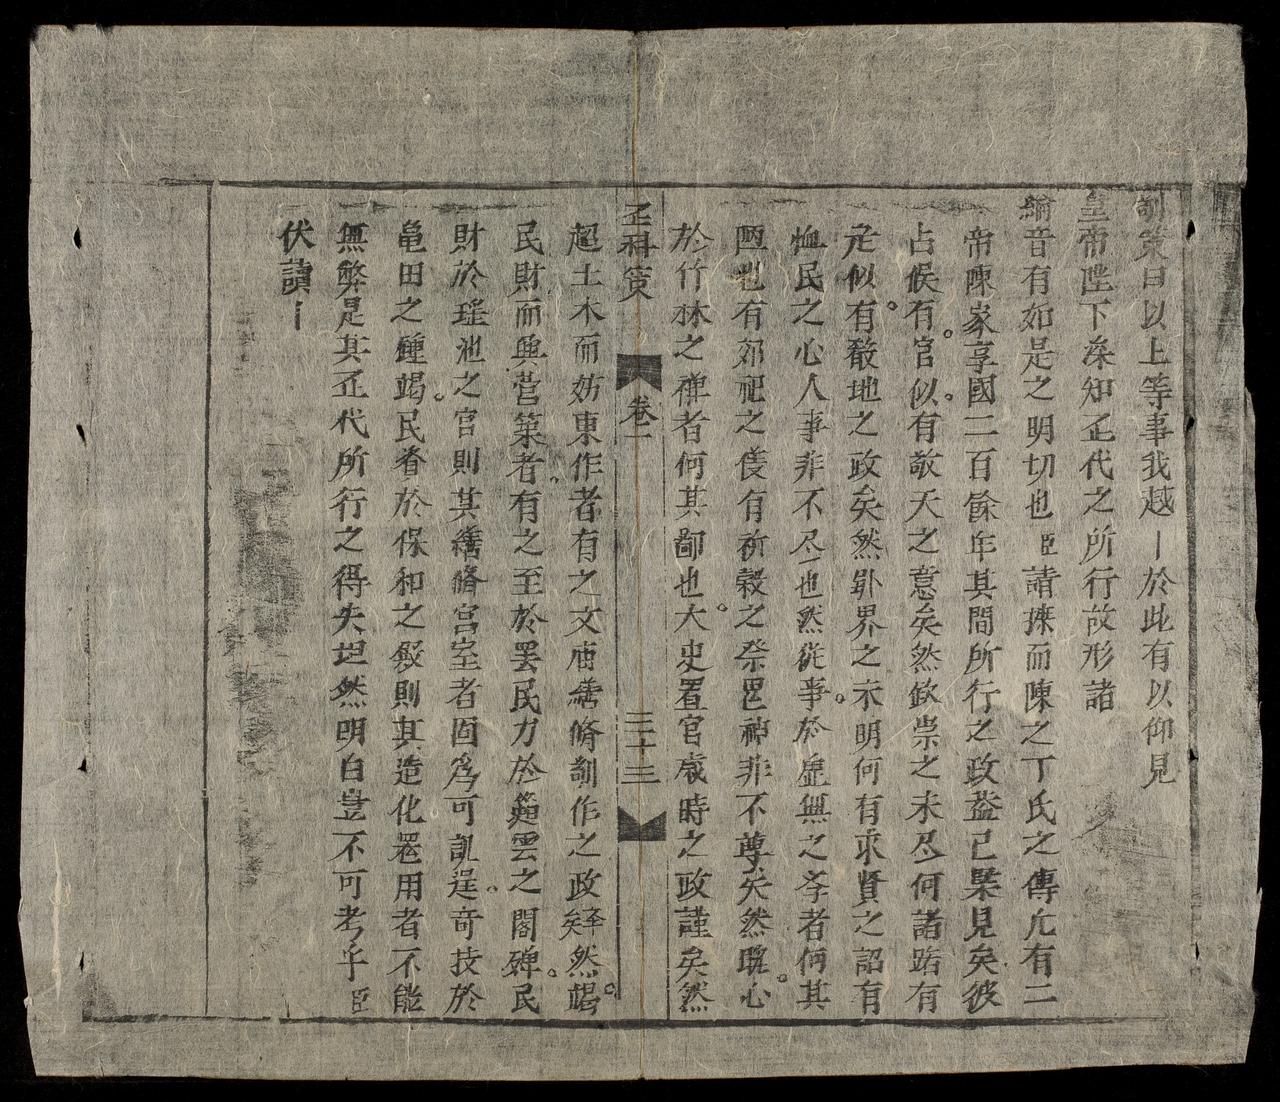 制策曰以上等事我越丨於此有以仰見
皇帝陛下深知歷代之所行故形諸
綸音有如是之明切也臣請探而陳之丁氏之傳凢有二
帝陳家享國二百餘年其間所行之政葢已槩見矣彼
占候有官似有敬天之意矣然欽崇之未尽何諸路有
定似有敬地之政矣然卧界之未明何有求賢之詔有
恤民之心人事非不尽也然從事於虛無之孝者何其
陋也有郊祀之侵有祈穀之祭邑神非不尊矣然甄心
於竹林之禅者何其鄙也大史置官歲時之政謹矣然
歷科策 卷一 三十三
起土木而妨東作者有之文庙繕脩制作之政舉矣然竭
民財而興营築者有之至於罢民力於蒞雲之閣碑民
財於瑶池之官則其繕脩宫室者固為可訛逞奇技於
亀田之鍾竭民脊於保和之殿則其造化噐用者不能
無弊是其歷代所行之得失坦然明白豈不可考乎臣
伏讀丨